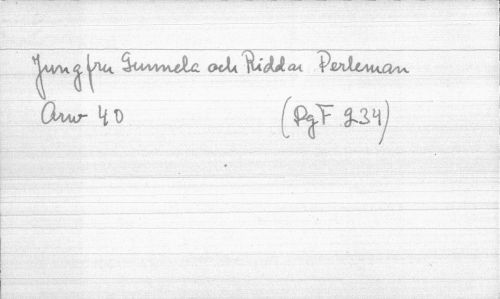 Jungfru Gunnela och Riddar Perleman
Arw 40 (DgF 234)